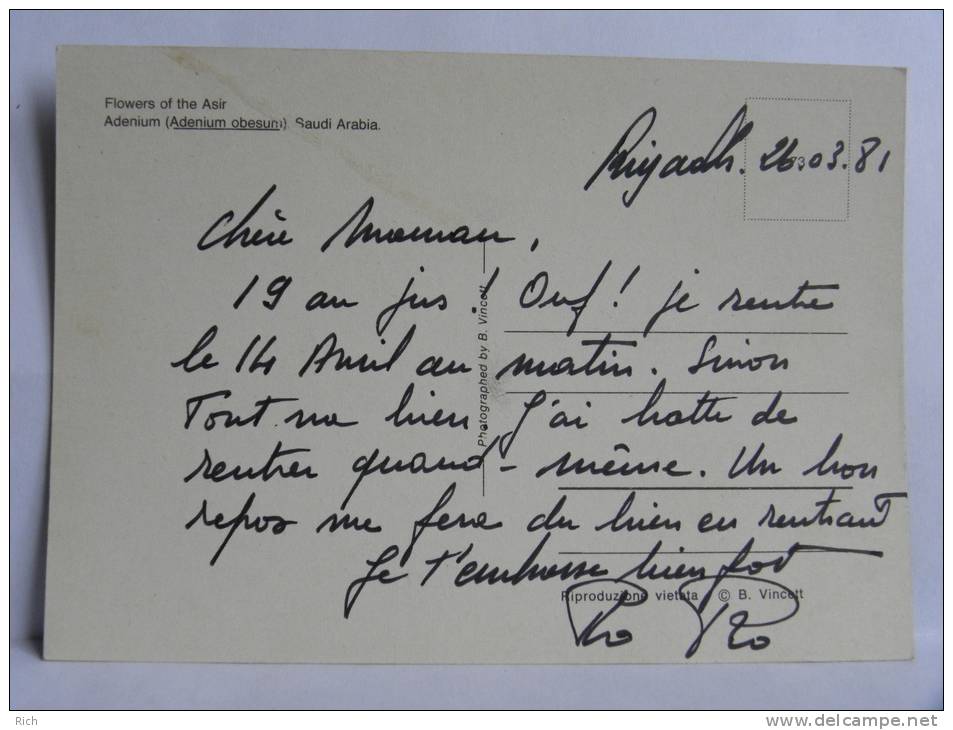 Flowers of the Asir
Adenium (Adenium obesum). Saudi Arabia.
Riyadh. 26.03.81
Chère Maman,
19 au jus! Ouf! je rentre
le 14 Avril au matin. Sinon
Tout va bien. J'ai hatte de
rentrer quand-même. Un bon
repos me fera du bien en rentrant
Je t'embrasse bien fort
Photographed by B. Vincett
Riproduzione vietata © B. Vincett
Rich
www.delcampe.net